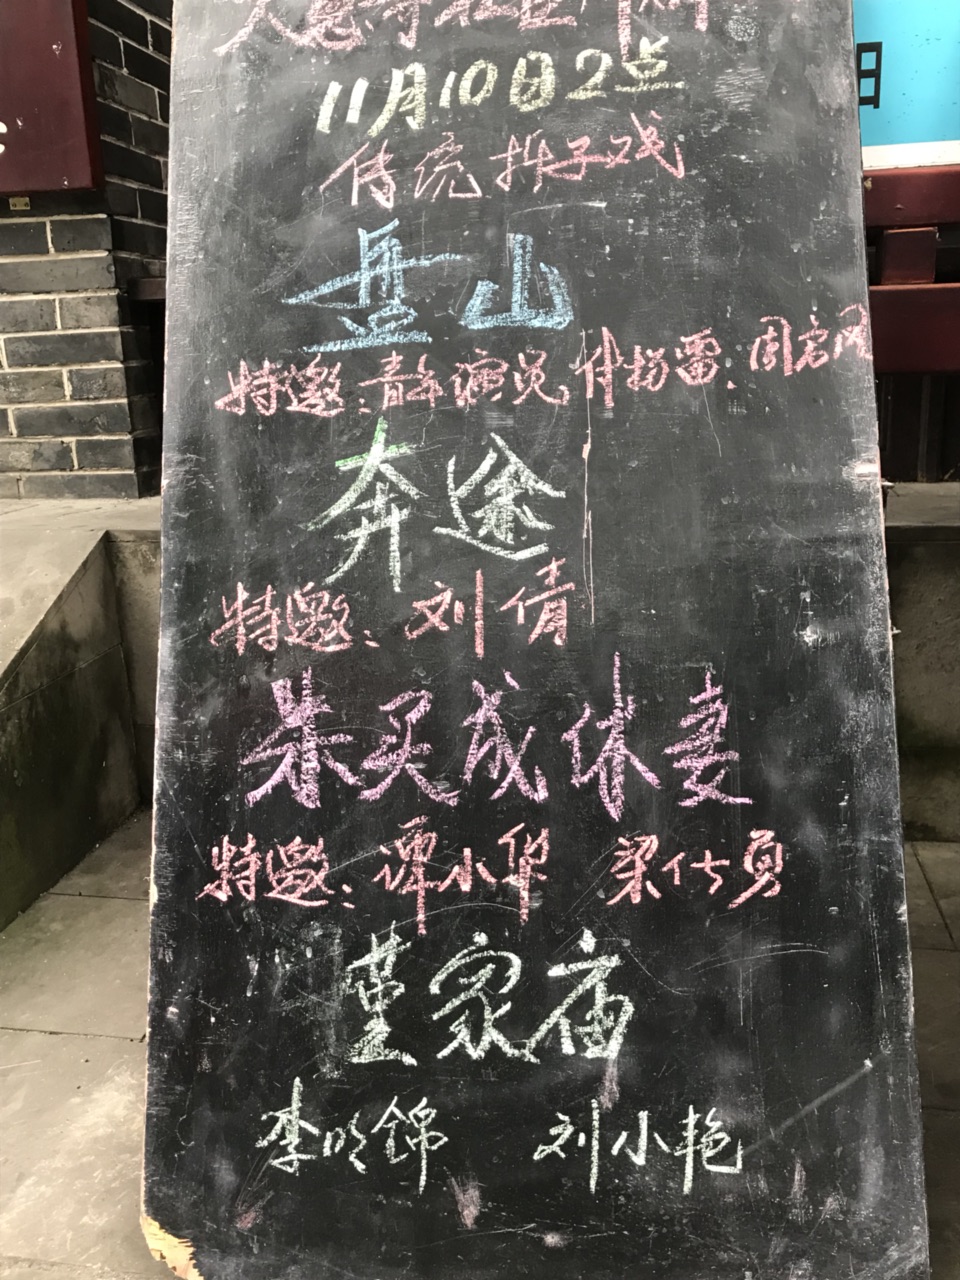 大慈寺社区
11月10日2点
传统折子戏
盘山
特邀:青年演员 周
奔途
特邀:刘倩
朱买成休妻
特邀:谭小华 梁仕勇
董家庙
李鸣锦 刘小艳
阳